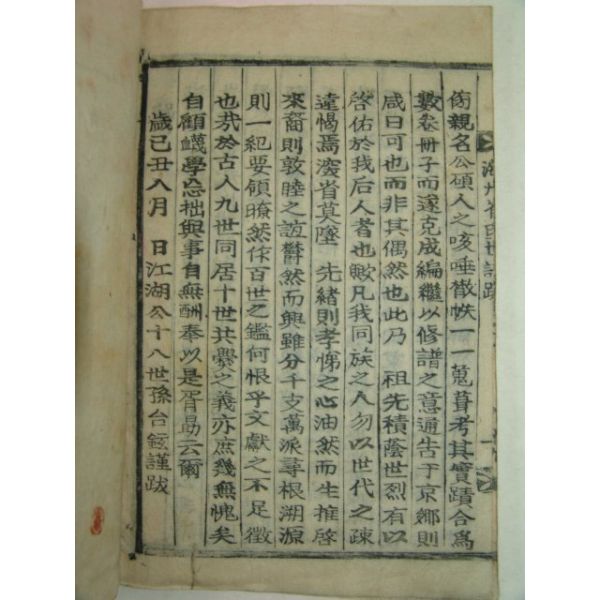 傍親名公碩人之咳唾散帙一一蒐葺考其實蹟合爲
數卷冊子而遂克成編繼以修譜之意通告于京鄕則
咸曰可也而非其偶然也此乃 祖先積蔭世烈有以
啓佑於我后人者也歟凡我同族之人勿以世代之疎
遠愒焉 省莫墜 先緖則孝悌之心油然而生推啓
來裔則敦睦之誼欝然而興雖分千支萬派尋根溯源
則一紀要領瞭然作百世之鑑何恨乎文獻之不足徵
也㢤於古人九世同居十世共爨之義亦庶幾無愧矣
自顧蔑學 拙與事自無酬奉以是胥勗云爾
歲己丑八月 日江湖公十八世孫台鉉謹跋
海州崔氏世譜跋